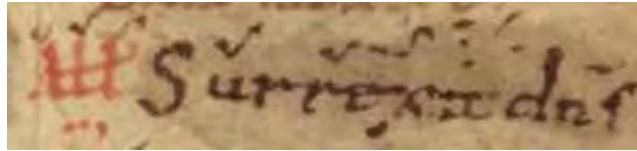 Surrexit dns